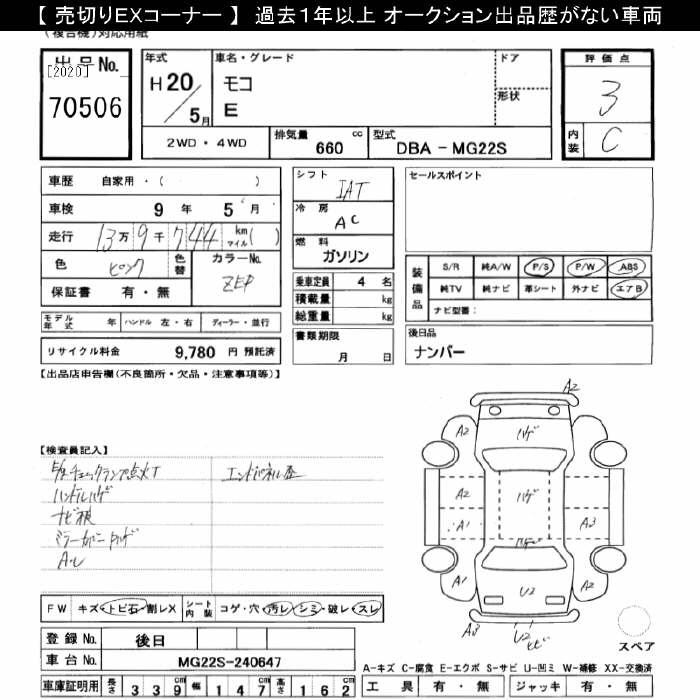 【 売切りEXコーナー 】 過去1年以上 オークション出品歴がない車両
(複合機)対応用紙
出品No.
[2020]
70506
年式
H20/5月
車名・グレード
モコ
E
ドア
形状
評価点
3
内装
C
2WD・4WD
排気量
660
cc
型式
DBA－MG22S
車歴 自家用・( )
車検 9年 5月
走行 13万9千744 km マイル( )
色 ピンク
色替
カラーNo.
ZEP
保証書 有・無
シフト
IAT
冷房
AC
燃料
ガソリン
乗車定員 4名
積載量 kg
総重量 kg
書類期限
月 日
セールスポイント
装備品
S/R 純A/W P/S P/W ABS
純TV 純ナビ 革シート 外ナビ エアB
ナビ型番：
後日品
ナンバー
モデル年式 年 ハンドル 左・右 ディーラー・並行
リサイクル料金 9,780 円 預託済
【出品店申告欄(不良箇所・欠品・注意事項等)】
【検査員記入】
チェックランプ点火T
エンドパネル歪
ハンドルハゲ
ナビ根
ミラーカバー
A・U
A2
A2
ハゲ
A2
A2
ハゲ
A1
A3
A1
U2
A2
A3
U2
ヒビ
スペア
FW キズ・トビ石・割レX
シート内装 コゲ・穴・汚レ・シミ・破レ・スレ
登録No. 後日
車台No. MG22S-240647
A-キズ C-腐食 E-エクボ S-サビ U-凹ミ W-補修 XX-交換済
車庫証明用 長さ 339 幅 147 高さ 162 cm
工具 有・無 ジャッキ 有・無